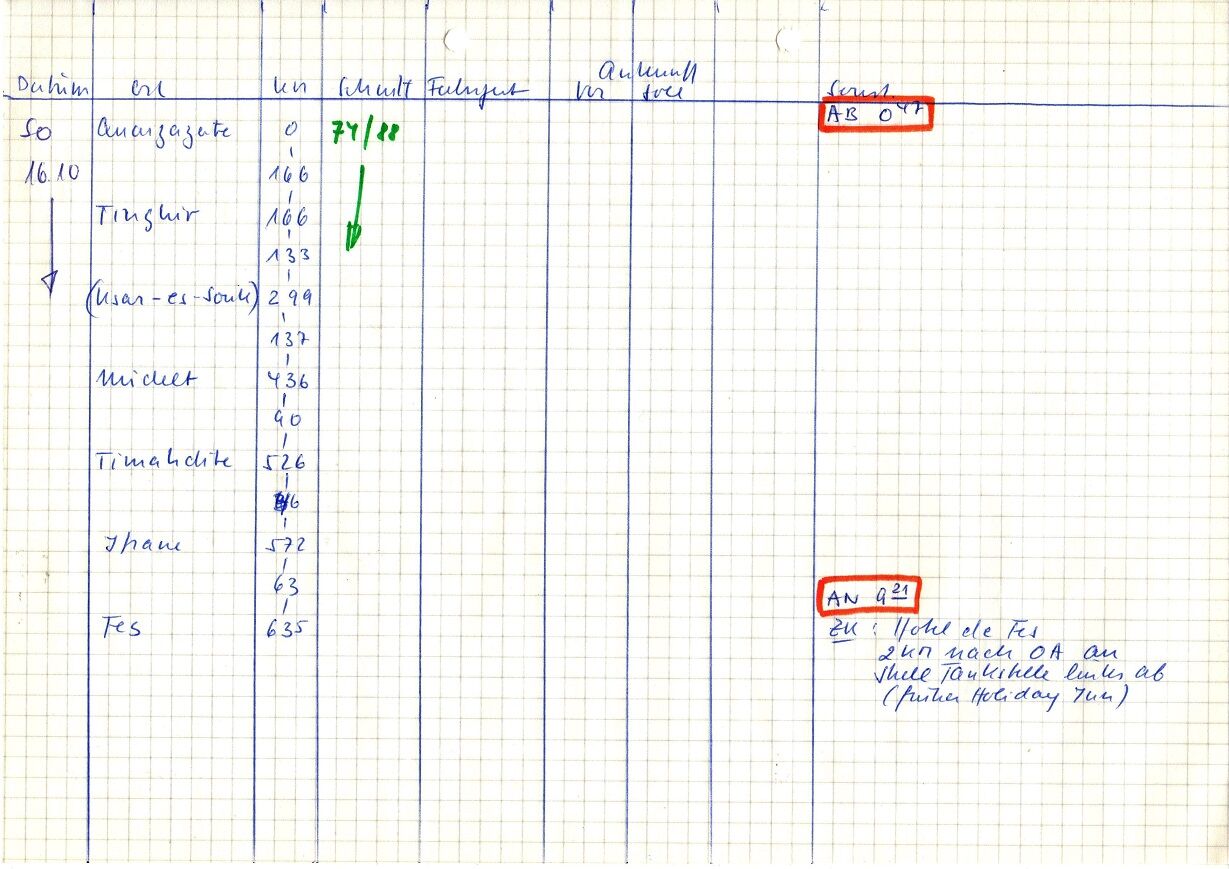 Datum Ort km Schnitt Fahrzeit Ankunft
vor. Soll Sonst.
SO Quarzazate 0 74/88 AB 0 47
16.10 166
Tinghir 166
133
(Ksar-es-Souk) 299
137
Midelt 436
90
Timahdite 526
46
Ifrane 572
63 AN 9 21
Fes 635 ZK: Hotel de Fes
2 km nach OA an
Shell Tankstelle links ab
(früher Holiday Inn)